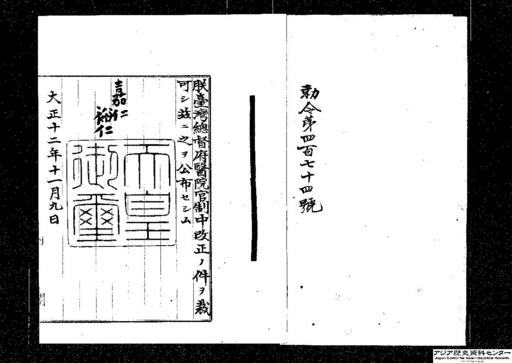 勅令第四百七十四號
朕臺灣總督府醫院官制中改正ノ件ヲ裁
可シ茲ニ之ヲ公布セシム
嘉仁
裕仁
天皇
御璽
大正十二年十一月九日
アジア歴史資料センター
Japan Center for Asian Historical Records